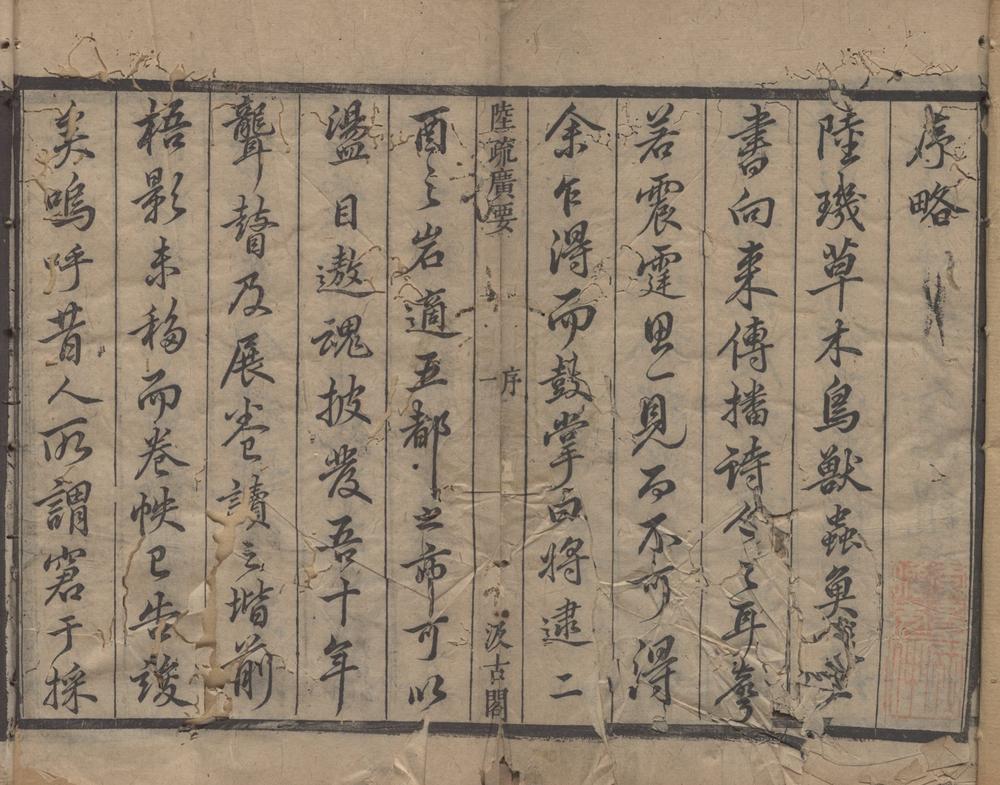 序略
陸璣草木鳥獸蟲魚疏一
書向來傳播詩人之耳
若震霆思一見而不可得
余乍得而鼓掌曰將逮二
陸疏廣要 序 一 汲古閣
酉之岩適五都之市可以
盪目遨魂披發吾十年
聾瞽及展卷讀之堦前
梧影未移而卷帙已告竣
矣嗚呼昔人所謂窘于採